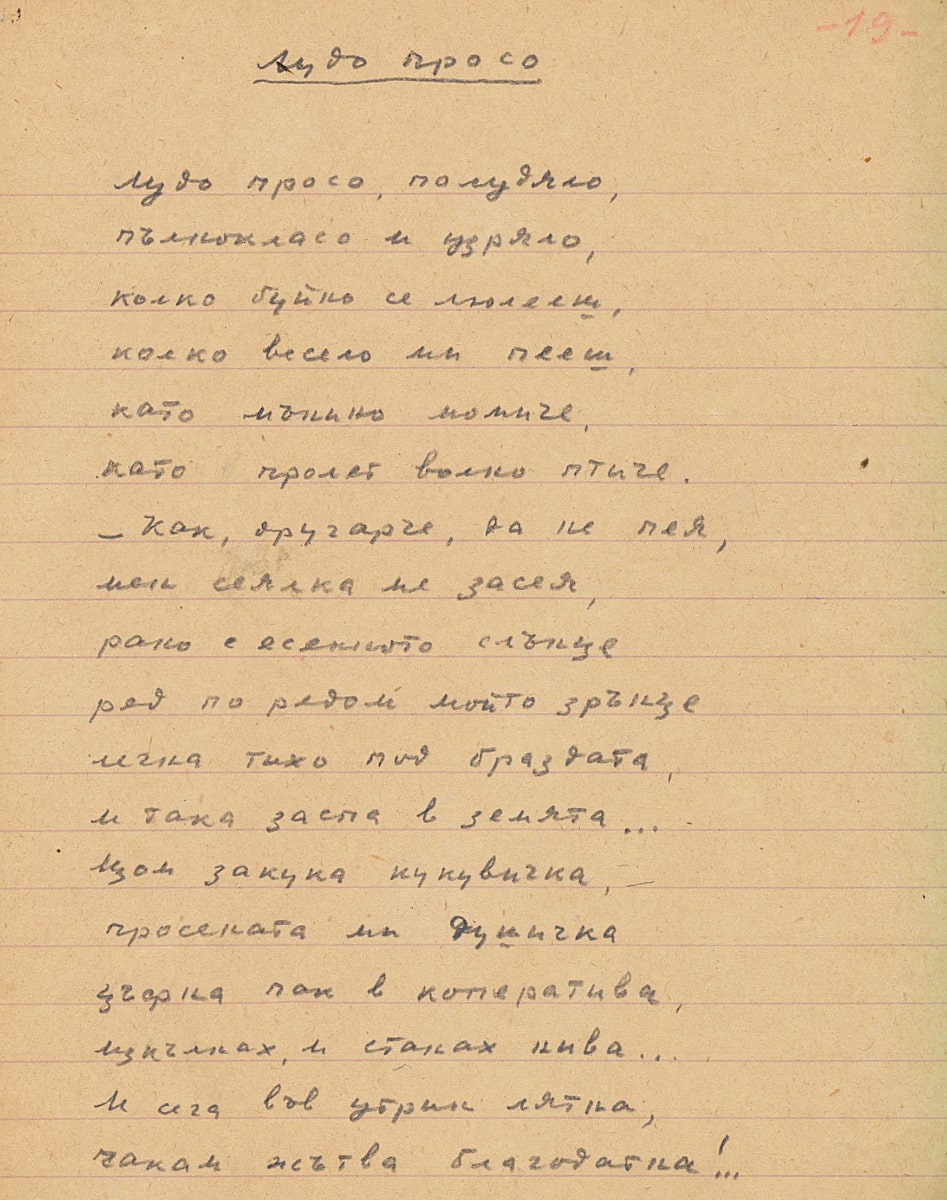 -19-
Лудо просо
Лудо просо, полудяло,
пълнокласо и узряло,
колко буйно се люлееш,
колко весело ми пееш,
като мънино момиче,
като пролет волно птиче.
– Как, другарче, да не пея,
мен сеялка ме засея,
рано с есенното слънце
ред по редом мойто зрънце
легна тихо под браздата,
и така заспа в земята...
Щом закука кукувичка, –
просената ми душичка
цъфна пак в коператива,
изкълнах, и станах нива...
И сега във утрин лятна,
чакам жътва благодатна!..